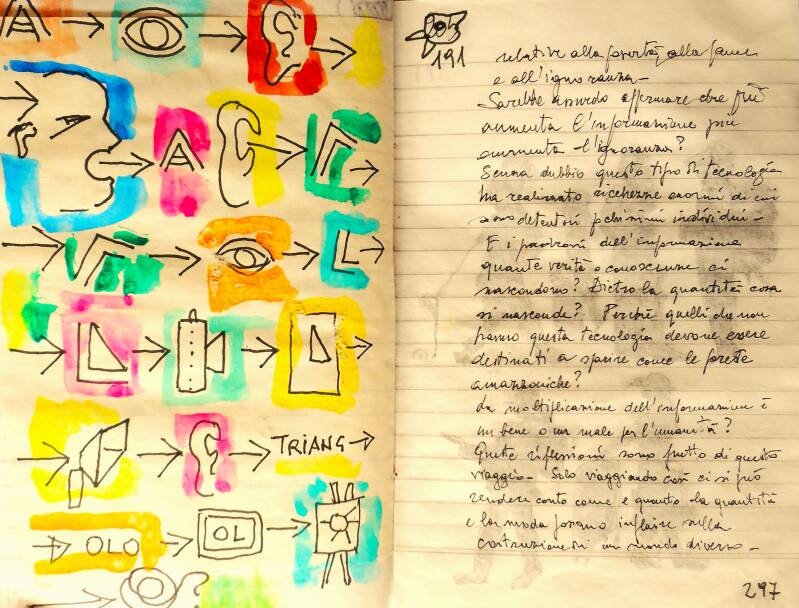 A
A
L
TRIANG
OLO
OL
191
relative alla povertà, alla fame
e all'ignoranza -
Sarebbe assurdo affermare che più
aumenta l'informazione più
aumenta l'ignoranza?
Senza dubbio questo tipo di tecnologia
ha realizzato ricchezze enormi di cui
sono detentori pochissimi individui -
E i padroni dell'informazione
quante verità o conoscenze ci
nascondono? Dietro la quantità cosa
si nasconde? Perché quelli che non
hanno questa tecnologia devono essere
destinati a sparire come le foreste
amazzoniche?
La moltiplicazione dell'informazione è
un bene o un male per l'umanità?
Queste riflessioni sono frutto di questo
viaggio - Solo viaggiando così ci si può
rendere conto come e quanto la quantità
e la moda possono influire sulla
costruzione di un mondo diverso -
297